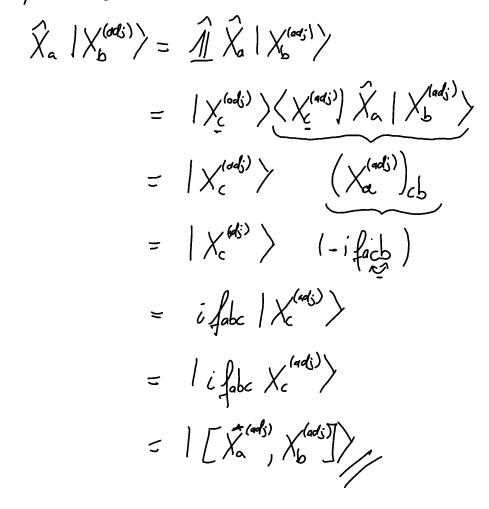 X̂_a |X_b^(adj)⟩ = 𝟙̂ X̂_a |X_b^(adj)⟩
= |X_c^(adj)⟩⟨X_c^(adj)| X̂_a |X_b^(adj)⟩
= |X_c^(adj)⟩ (X_a^(adj))_cb
= |X_c^(adj)⟩ (-i f_acb)
= i f_abc |X_c^(adj)⟩
= |i f_abc X_c^(adj)⟩
= |[X̂_a^(adj), X_b^(adj)]⟩